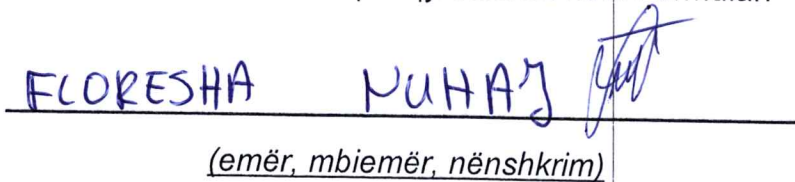 FLORESHA NUHAJ
(emër, mbiemër, nënshkrim)